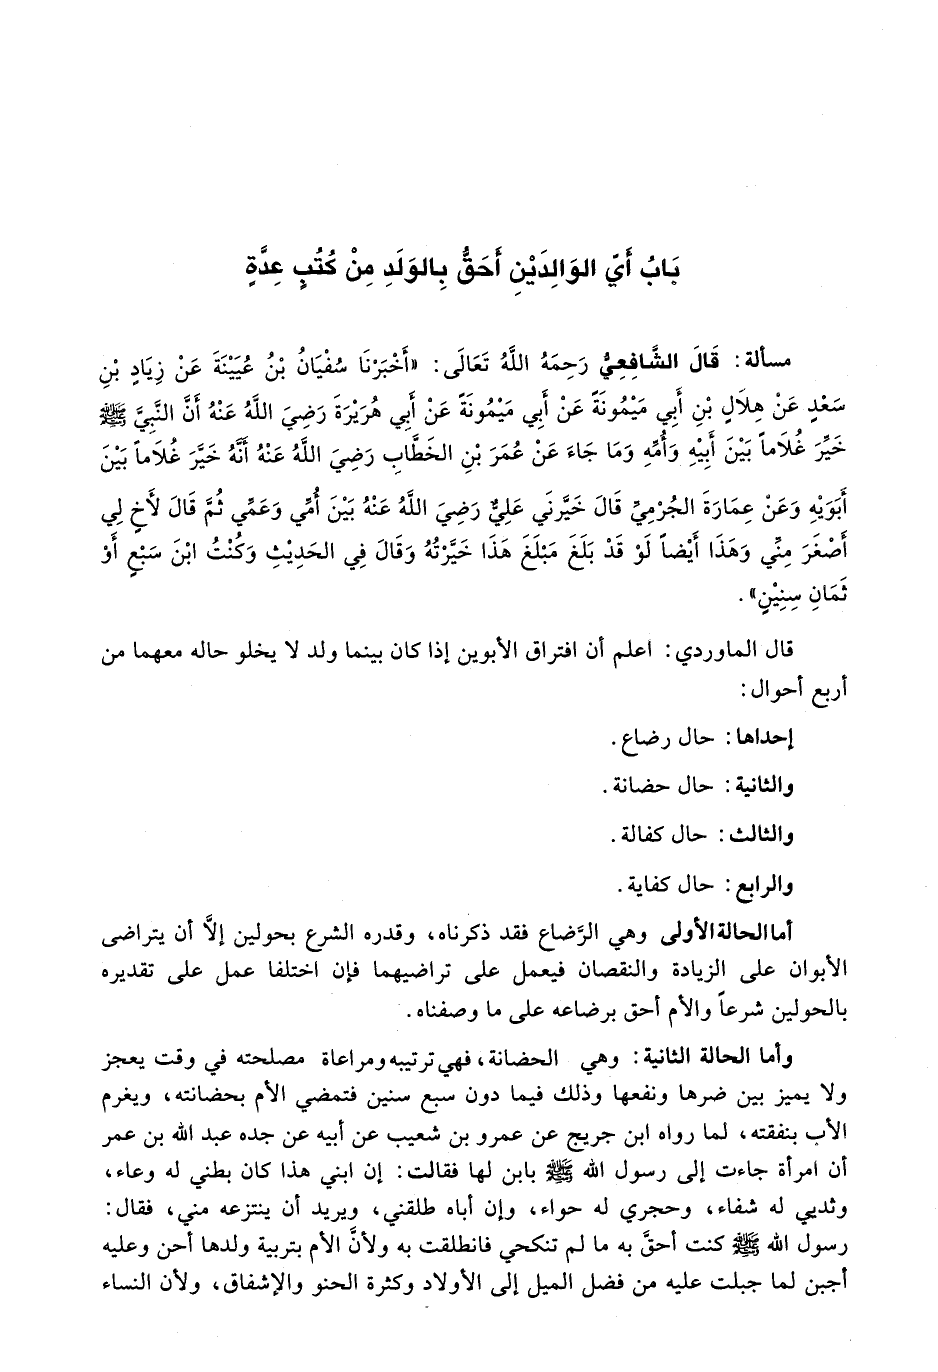 بَابُ أَيِّ الوَالِدَيْنِ أَحَقُّ بِالوَلَدِ مِنْ كُتُبٍ عِدَّةٍ
مسألة: قَالَ الشَّافِعِيُّ رَحِمَهُ اللَّهُ تَعَالَى: «أَخْبَرْنَا سُفْيَانُ بْنُ عُيَيْنَةَ عَنْ زِيَادِ بْنِ
سَعْدٍ عَنْ هِلَالِ بْنِ أَبِي مَيْمُونَةً عَنْ أَبِي مَيْمُونَةً عَنْ أَبِي هُرَيْرَةَ رَضِيَ اللَّهُ عَنْهُ أَنَّ النَّبِيَّ ﷺ
خَيَّرَ غُلَاماً بَيْنَ أَبِيْهِ وَأُمِّهِ وَمَا جَاءَ عَنْ عُمَرَ بْنِ الخَطَّابِ رَضِيَ اللَّهُ عَنْهُ أَنَّهُ خَيَّرَ غُلَاماً بَيْنَ
أَبَوَيْهِ وَعَنْ عِمَارَةَ الجُرْمِيِّ قَالَ خَيَّرَنِي عَلِيٌّ رَضِيَ اللَّهُ عَنْهُ بَيْنَ أُمِّي وَعَمِّي ثُمَّ قَالَ لَأَخٍ لِي
أَصْغَرَ مِنِّي وَهَذَا أَيْضاً لَوْ قَدْ بَلَغَ مَبْلَغَ هَذَا خَيَّرْتُهُ وَقَالَ فِي الحَدِيْثِ وَكُنْتُ ابْنَ سَبْعٍ أَوْ
ثَمَانِ سِنِيْنٍ».
قال الماوردي: اعلم أن افتراق الأبوين إذا كان بينما ولد لا يخلو حاله معهما من
أربع أحوال:
إحداها: حال رضاع.
والثانية: حال حضانة.
والثالث: حال كفالة.
والرابع: حال كفاية.
أما الحالة الأولى وهي الرَّضاع فقد ذكرناه، وقدره الشرع بحولين إلاَّ أن يتراضى
الأبوان على الزيادة والنقصان فيعمل على تراضيهما فإن اختلفا عمل على تقديره
بالحولين شرعاً والأم أحق برضاعه على ما وصفناه.
وأما الحالة الثانية: وهي الحضانة، فهي ترتيبه ومراعاة مصلحته في وقت يعجز
ولا يميز بين ضرها ونفعها وذلك فيما دون سبع سنين فتمضي الأم بحضانته، ويغرم
الأب بنفقته، لما رواه ابن جريج عن عمرو بن شعيب عن أبيه عن جده عبد الله بن عمر
أن امرأة جاءت إلى رسول الله ﷺ بابن لها فقالت: إن ابني هذا كان بطني له وعاء،
وثديي له شفاء، وحجري له حواء، وإن أباه طلقني، ويريد أن ينتزعه مني، فقال:
رسول الله ﷺ كنت أحقَّ به ما لم تنكحي فانطلقت به ولأنَّ الأم بتربية ولدها أحن وعليه
أجبن لما جبلت عليه من فضل الميل إلى الأولاد وكثرة الحنو والإشفاق، ولأن النساء